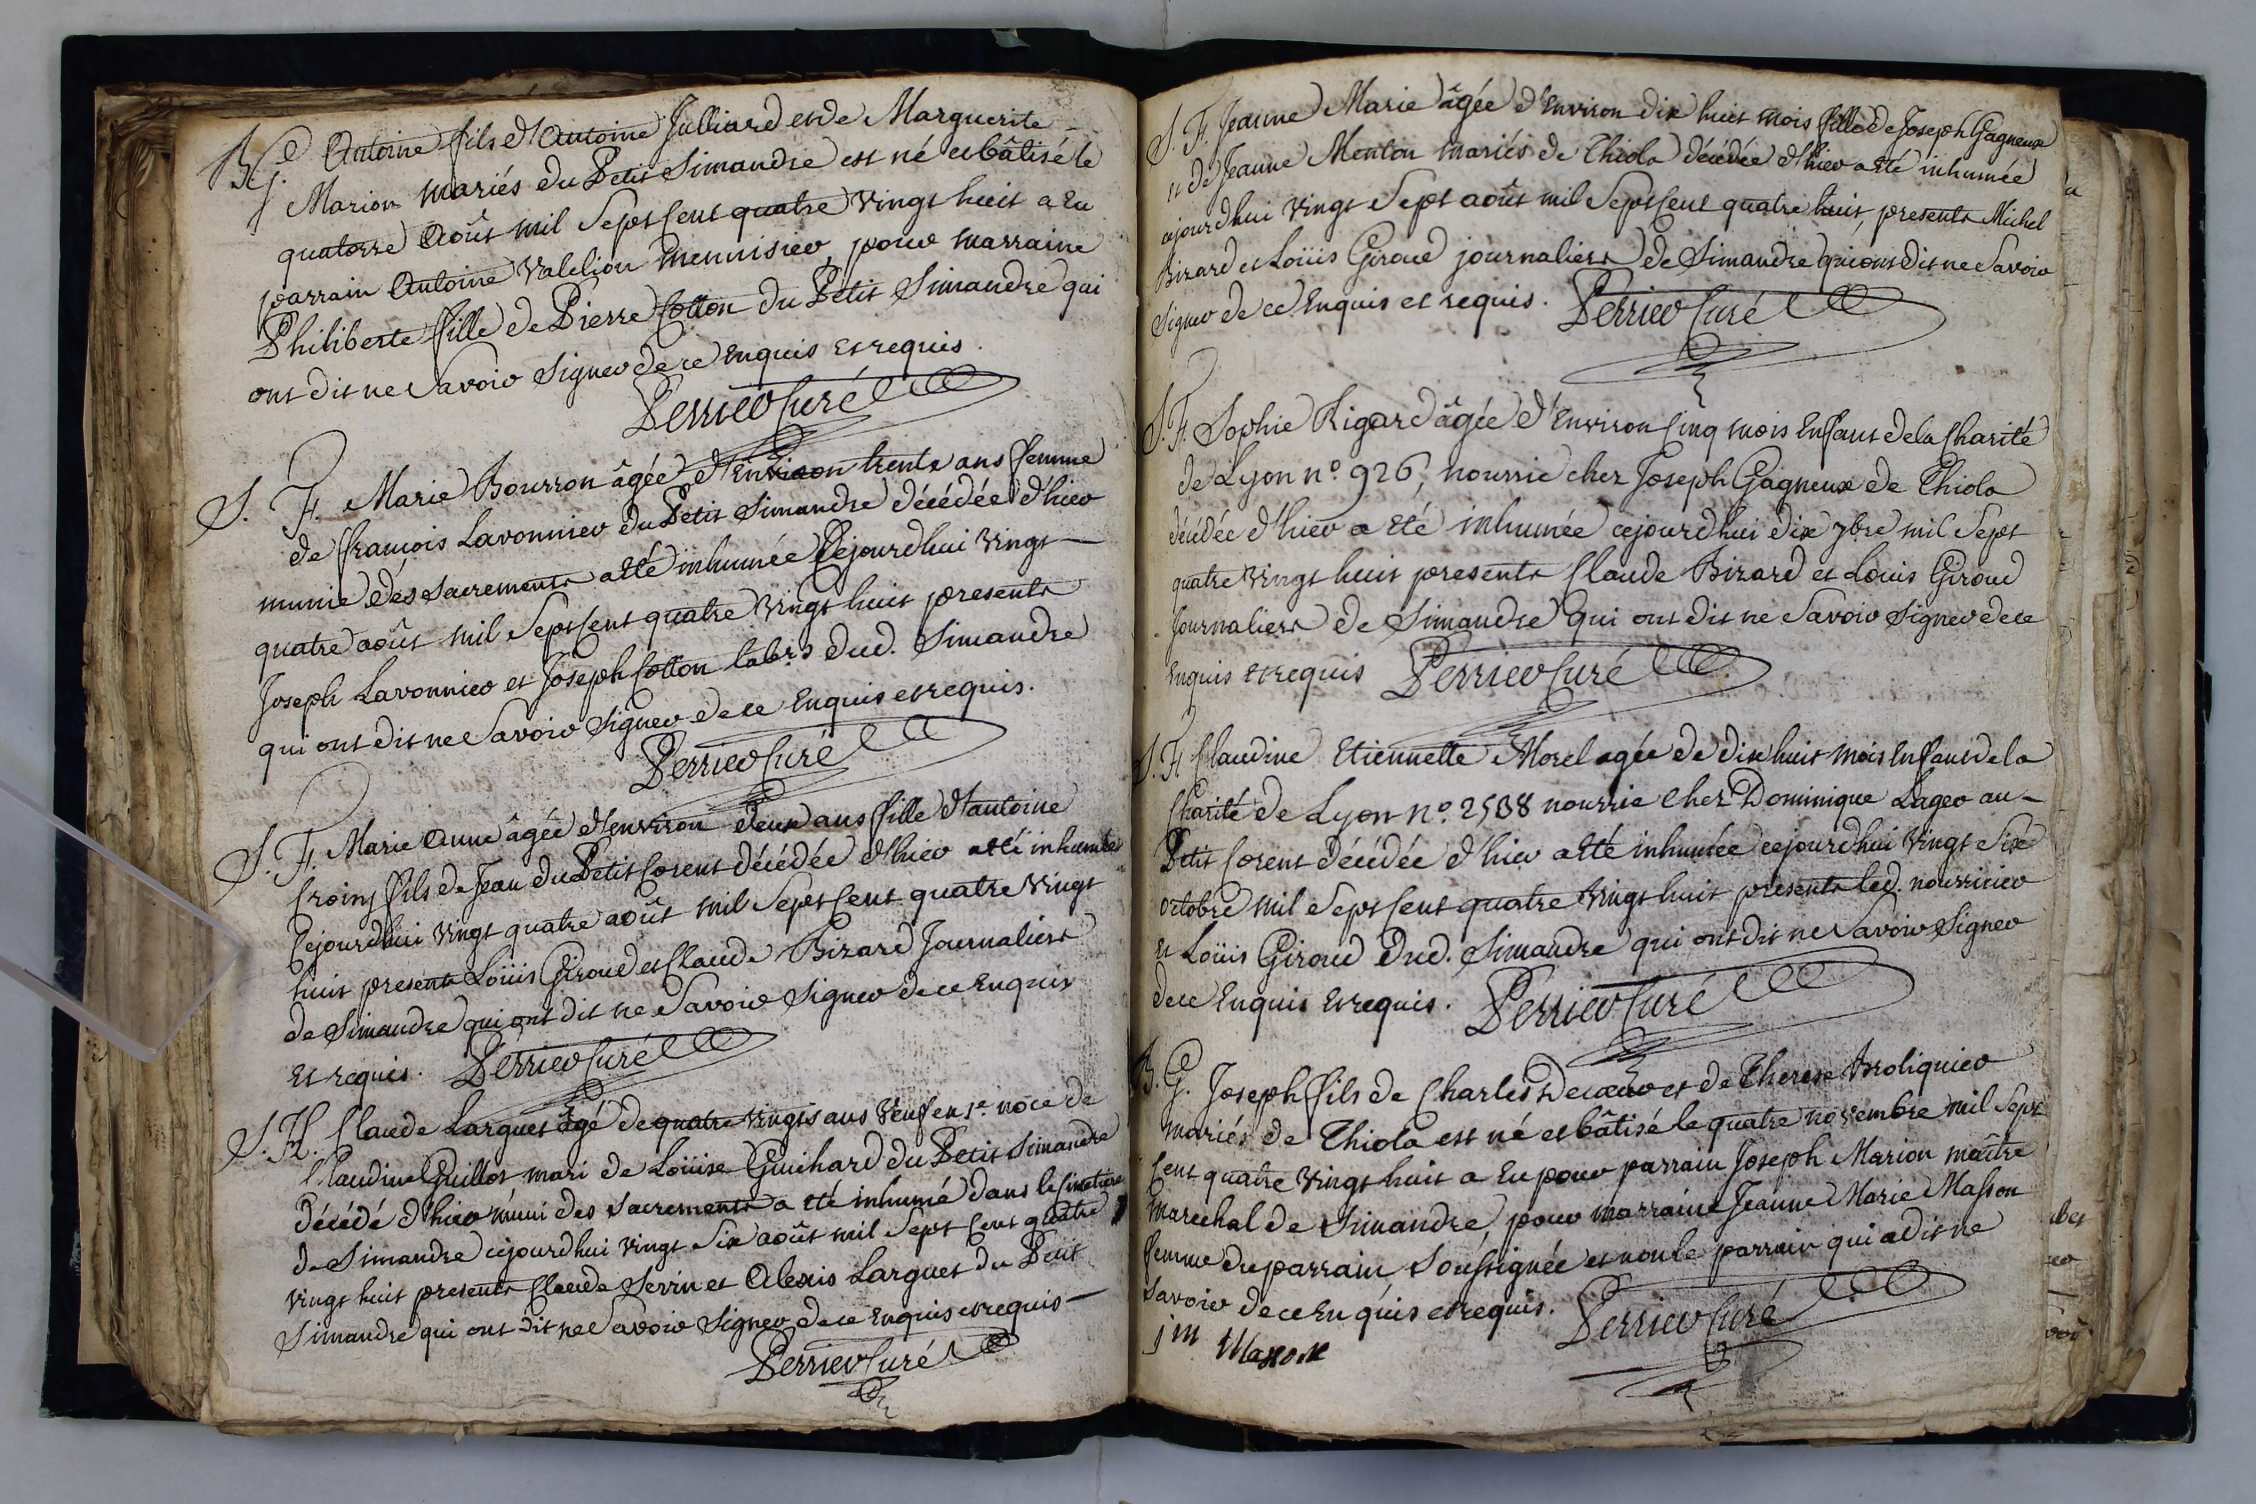 B. G. Antoine fils d'Antoine Julliard et de Marguerite
Marion mariés du Petit Simandre est né et bâtisé le
quatorze Août mil Sept Cent quatre vingt huit a Eu
parrain Antoine Valelion menuisier, pour marraine
Philiberte fille de Pierre Cotton du Petit Simandre qui
ont dit ne Savoir Signer de ce Enquis et requis.
Perrier Curé
S. F. Marie Bourron âgée d'Environ trente ans femme
de françois Lavonnier du Petit Simandre décédée d'hier
munie des Sacrements a été inhumée Cejourdhui vingt
quatre août mil Sept Cent quatre vingt huit presents
Joseph Lavonnier et Joseph Cotton labrs dud. Simandre
qui ont dit ne Savoir Signer de ce Enquis et requis.
Perrier Curé
S. F. Marie Anne âgée d'environ deux ans fille d'antoine
fils de Jean du Petit Corent décédée d'hier a été inhumée
Cejourdhui vingt quatre août mil Sept Cent quatre vingt
huit presents Loüis Giroud et Claude Bizard Journaliers
de Simandre qui ont dit ne Savoir Signer de ce Enquis
et requis. Perrier Curé
S. H. Claude Larguet âgé de quatre vingts ans Veuf en 1e. noce de
Claudine Guillot mari de Loüise Guichard du Petit Simandre
décédé d'hier muni des Sacrements a été inhumé dans le Cimetiere
de Simandre cejourdhui vingt Six août mil Sept Cent quatre
vingt huit presents Claude Sevin et Alexis Larguet du Petit
Simandre qui ont dit ne Savoir Signer de ce Enquis et requis
Perrier Curé
S. F. Jeanne Marie âgée d'Environ dix huit mois fille de Joseph Gagneux
et de Jeanne Menton mariés de Thiola décédée d'hier a été inhumée
cejourdhui vingt Sept août mil Sept Cent quatre huit, presents Michel
Bizard et Loüis Giroud journaliers de Simandre qui ont dit ne Savoir
Signer de ce Enquis et requis. Perrier Curé
S. F. Sophie Rigard âgée d'Environ Cinq mois Enfant de la Charité
de Lyon n° 926, nourrie chez Joseph Gagneux de Thiola
décédée d'hier a été inhumée cejourdhui dix 7bre mil Sept
quatre vingt huit presents Claude Bizard et Louis Giroud
Journaliers de Simandre qui ont dit ne Savoir Signer de ce
Enquis et requis Perrier Curé
S. F. Claudine Etiennette Morel agée de dix huit mois Enfant de la
Charité de Lyon n°. 2508 nourrie chez Dominique Lager au
Petit Corent décédée d'hier a été inhumée cejourdhui vingt Six
octobre mil Sept Cent quatre vingt huit presents led. nourricier
et Loüis Giroud dud. Simandre qui ont dit ne Savoir Signer
de ce Enquis et requis. Perrier Curé
B. G. Joseph fils de Charles Decœur et de Therese Broliquier
mariés de Thiola est né et bâtisé le quatre novembre mil Sept
Cent quatre vingt huit a Eu pour parrain Joseph Marion maître
marechal de Simandre, pour marraine Jeanne Marie Masson
femme du parrain Soussignée et non le parrain qui a dit ne
Savoir de ce Enquis et requis. Perrier Curé
jm Masson